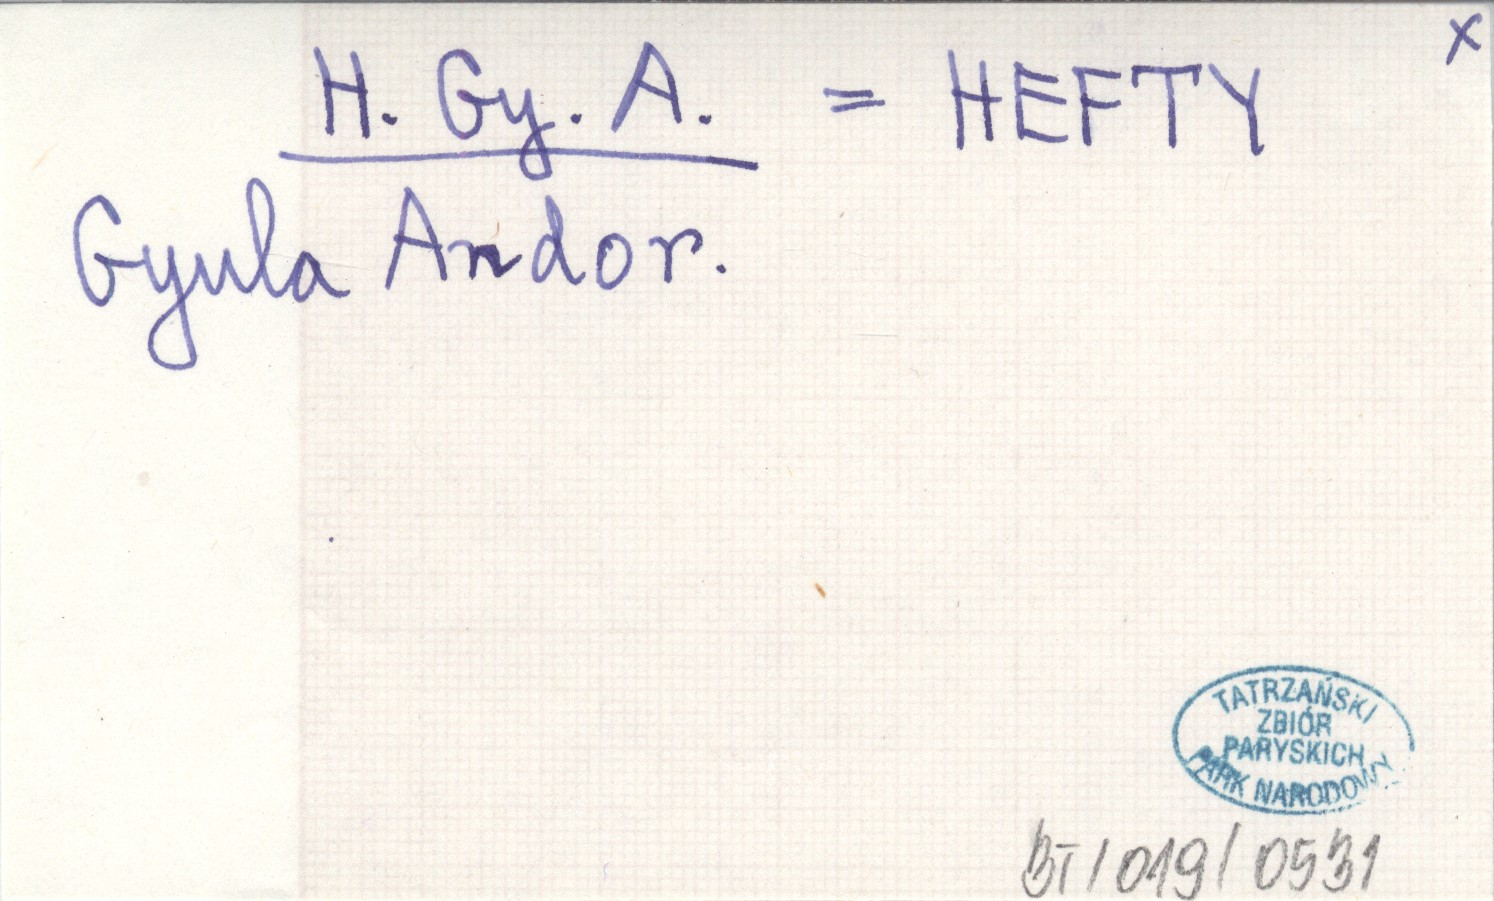 x
H. Gy. A. = HEFTY
Gyula Andor.
TATRZAŃSKI
ZBIÓR
PARYSKICH
PARK NARODOWY
BT/019/0531